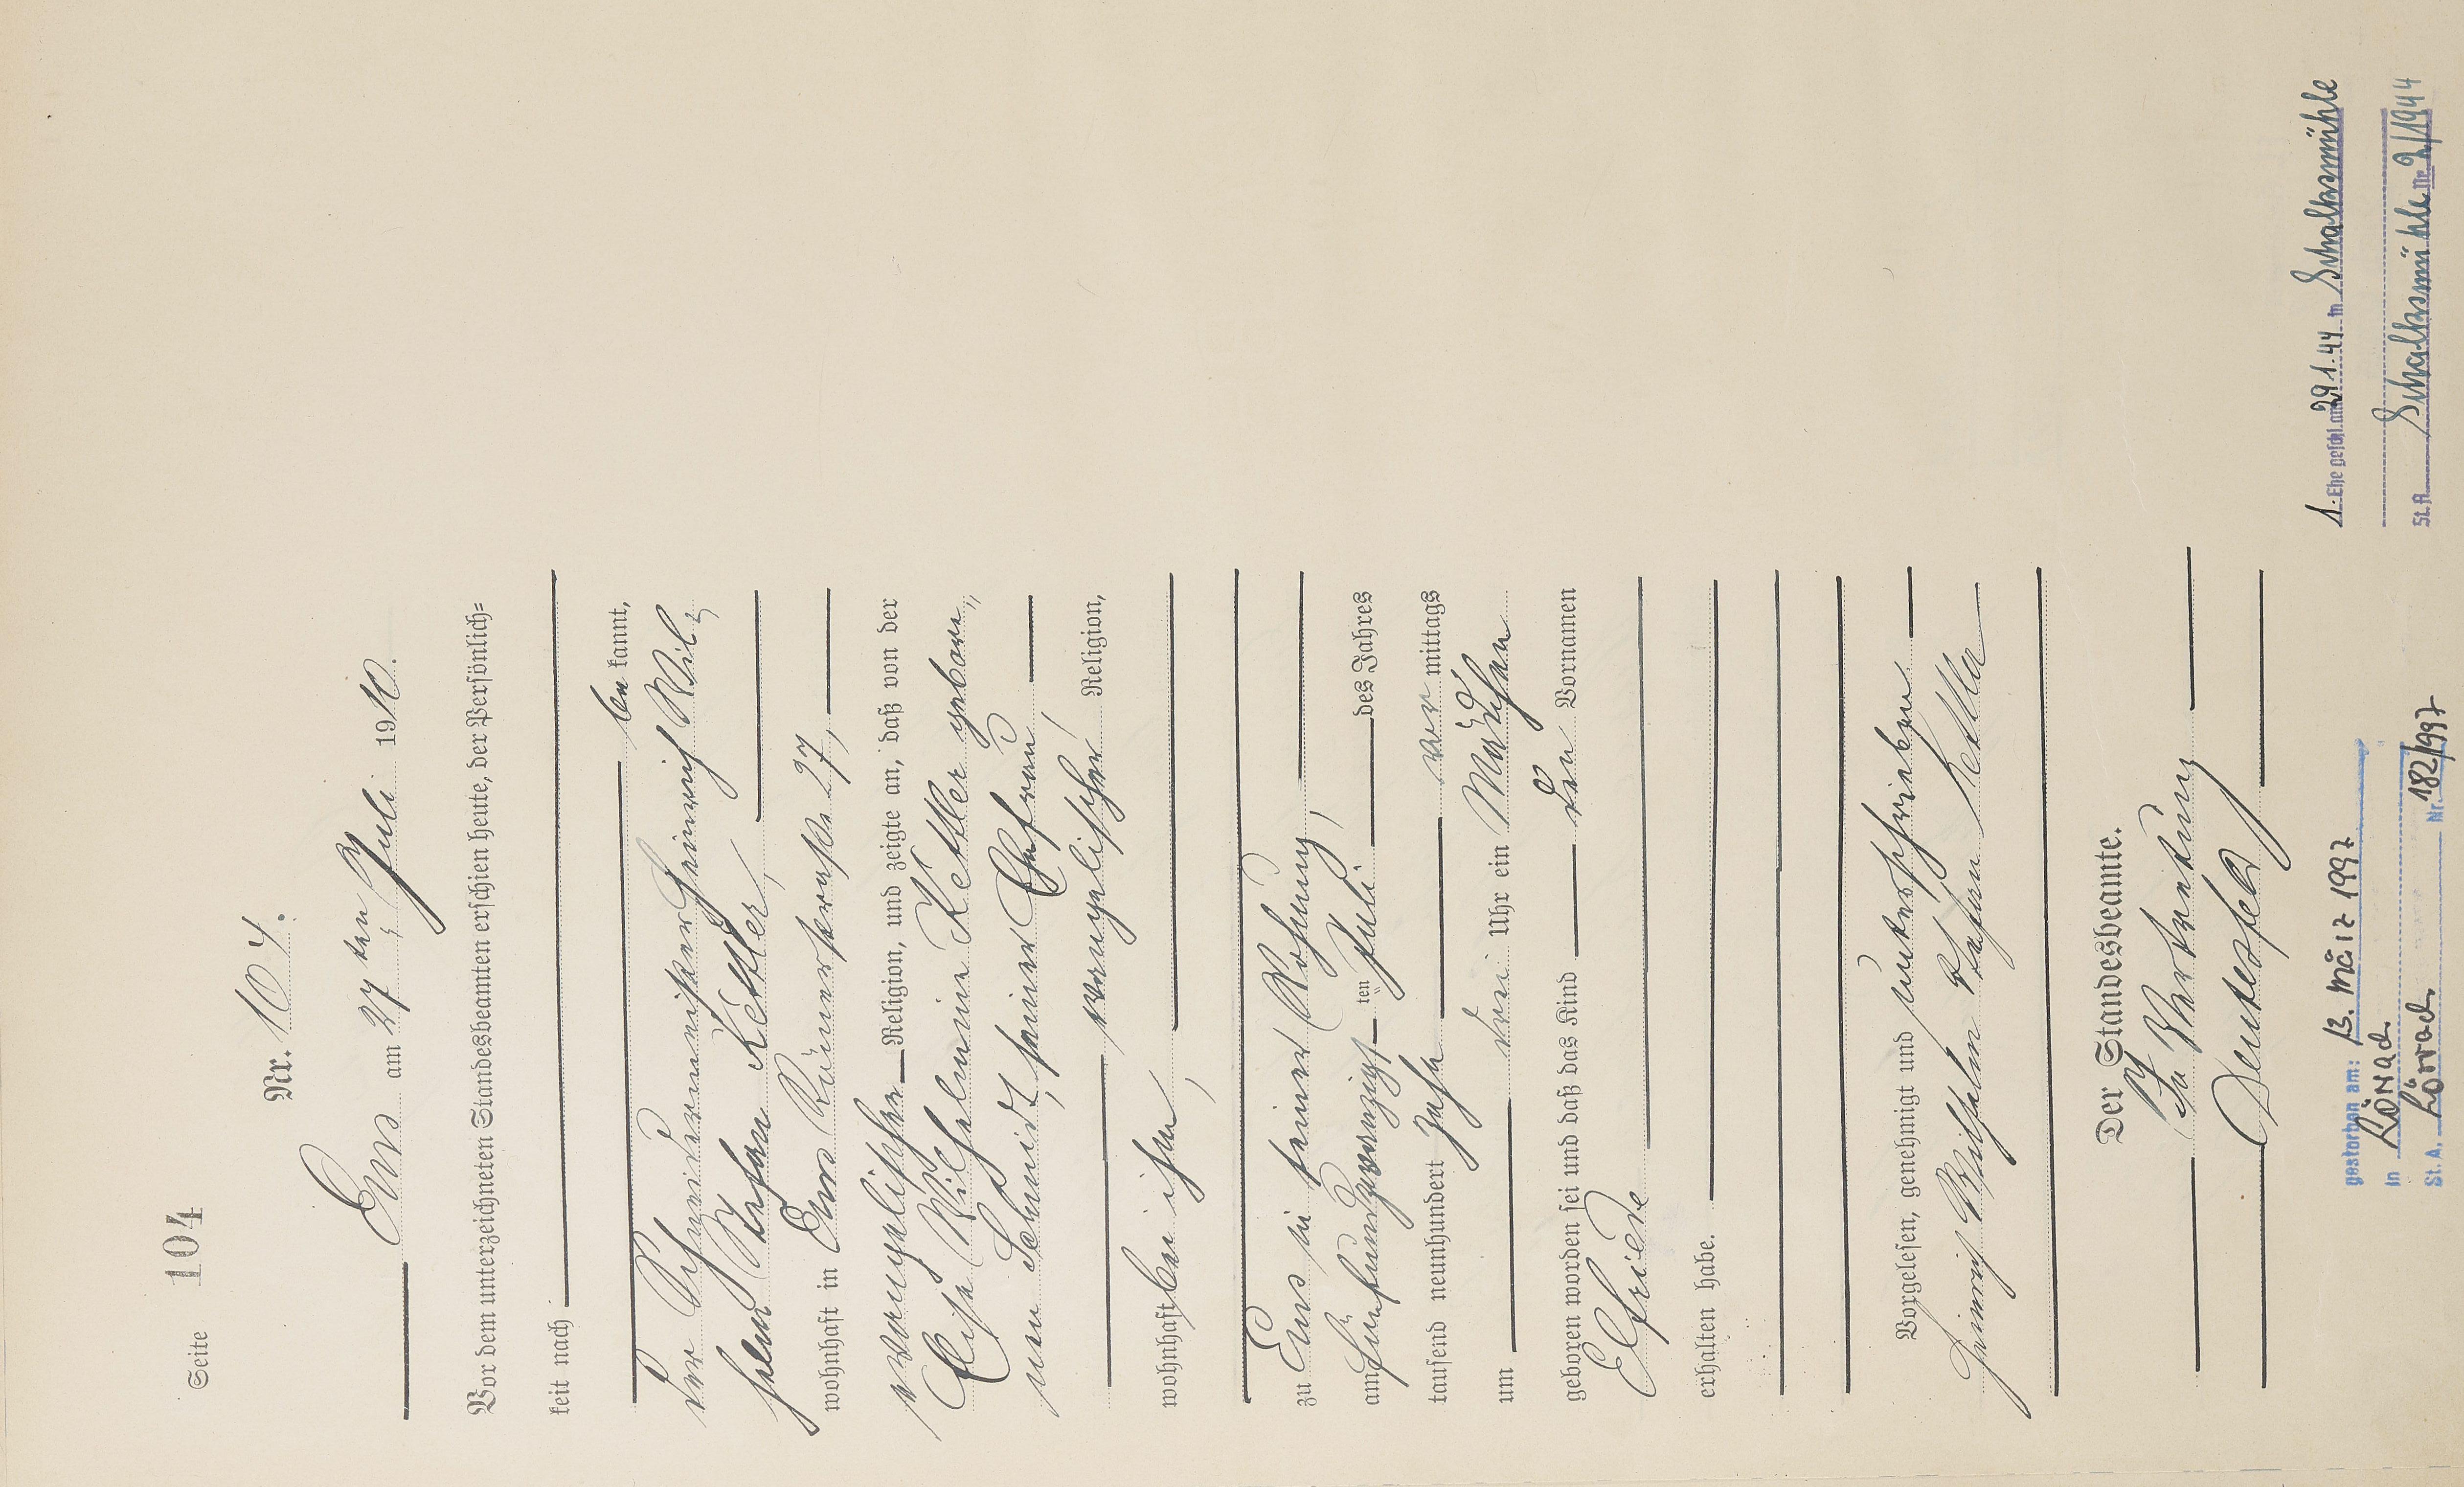 Seite 104
Nr. 104.
Ems am 27ten Juli 1910.
Vor dem unterzeichneten Standesbeamten erschien heute, der Persönlich=
keit nach
bekannt,
der Schneidermeister Heinrich Wil=
helm Stefan Kettler,
wohnhaft in Ems Römerstrasse 27,
evangelischer Religion, und zeigte an, daß von der
Elise Wilhelmine Kettler gebore=
nen Schmidt, seiner Ehefrau,
evangelischer Religion,
wohnhaft bei ihm,
zu Ems in seiner Wohnung,
am fünfundzwanzigsten Juli des Jahres
tausend neunhundert zehn vormittags
um drei Uhr ein Mädchen
geboren worden sei und daß das Kind den Vornamen
Elfriede
erhalten habe.
Vorgelesen, genehmigt und unterschrieben
Heinrich Wilhelm Stefan Kettler
Der Standesbeamte.
In Vertretung
1. Ehe geschl. am 29.1.44 in Schalksmühle
St. A. Schalksmühle Nr. 2/1944
gestorben am: 13. März 1997
in Lörrach
St. A. Lörrach Nr. 182/1997